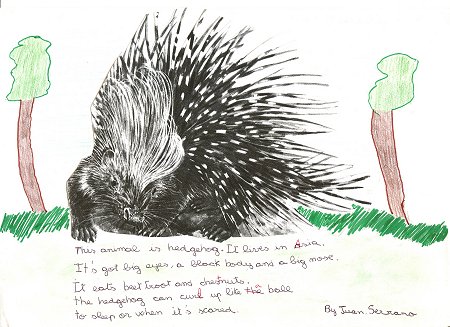 This animal is hedgehog. It lives in Asia.
It's got big eyes, a black body and a big nose.
It eats beetroot and chestnuts.
The hedgehog can curl up like the ball
to sleep or when it's scared.
By Juan Serrano